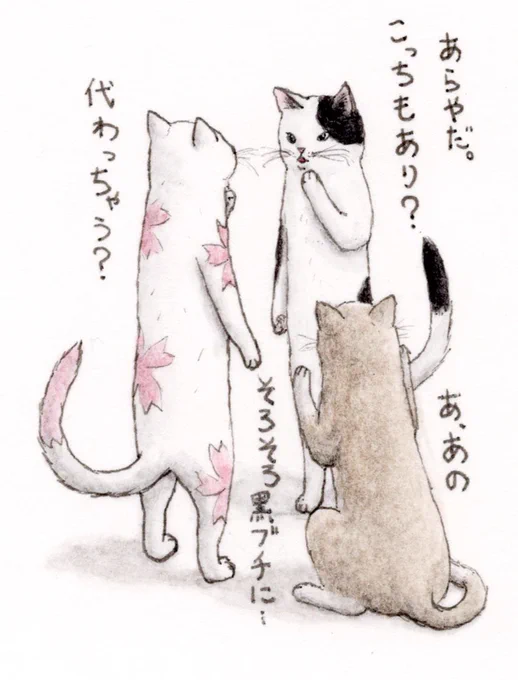 あらやだ。
こっちもあり？
代わっちゃう？
あ、あの
そろそろ黒ブチに…